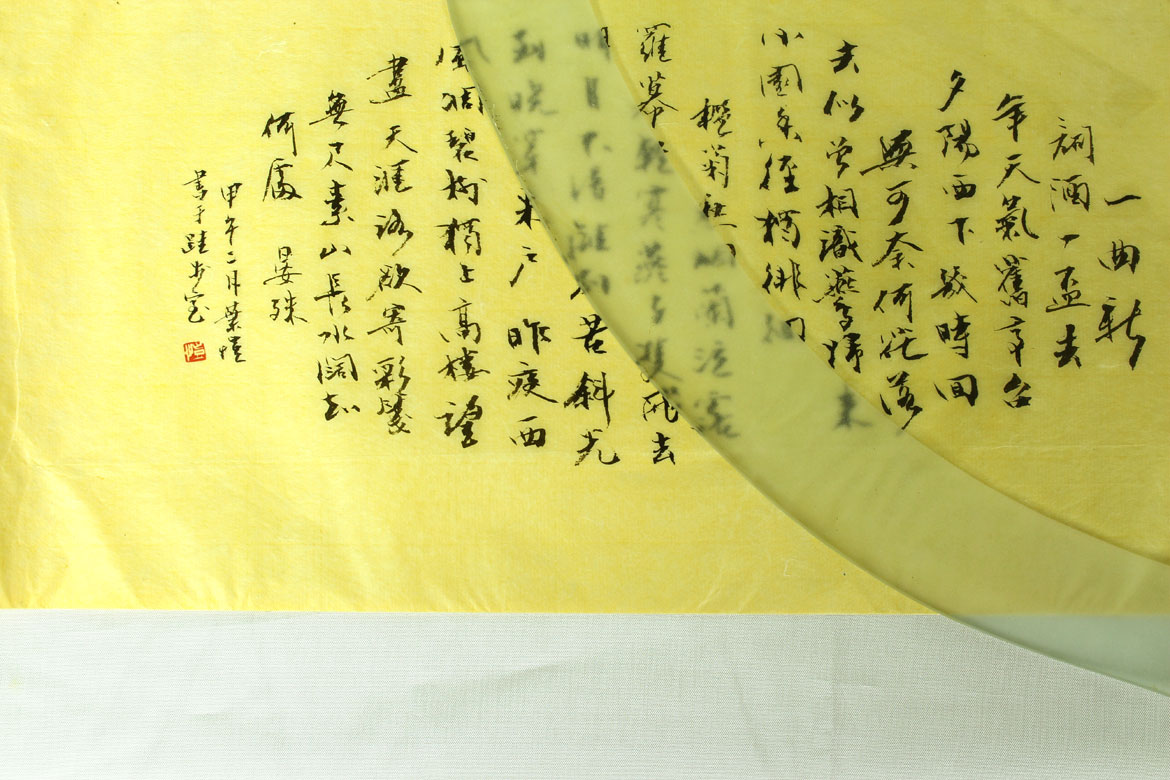 一曲新
詞酒一盃去
年天氣舊亭台
夕陽西下幾時回
無可奈何花落
去似曾相識燕歸來
小園香徑獨徘徊
檻菊愁煙蘭泣露
羅幕輕寒燕子雙飛去
明月不諳離別苦斜光
到曉穿朱戶昨夜西
風凋碧樹獨上高樓望
盡天涯路欲寄彩箋
無尺素山長水闊知
何處 晏殊
甲午二月葉
書于步室